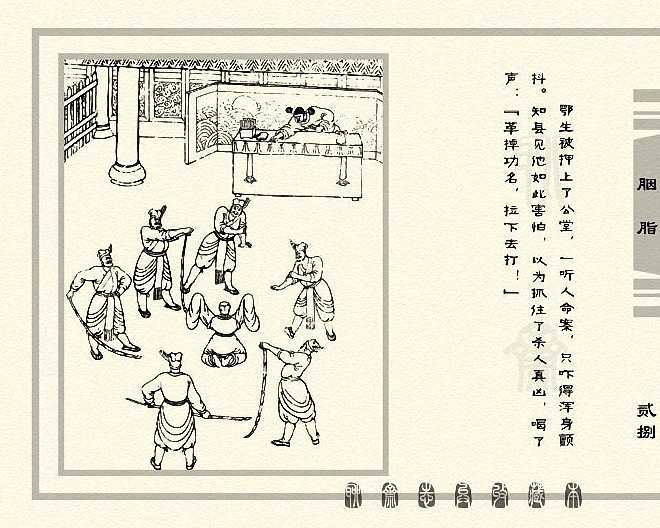 鄂生被押上了公堂，一听人命案，只吓得浑身颤
抖。知县见他如此害怕，以为抓住了杀人真凶，喝了
声：“革掉功名，拉下去打！”
胭脂
贰捌